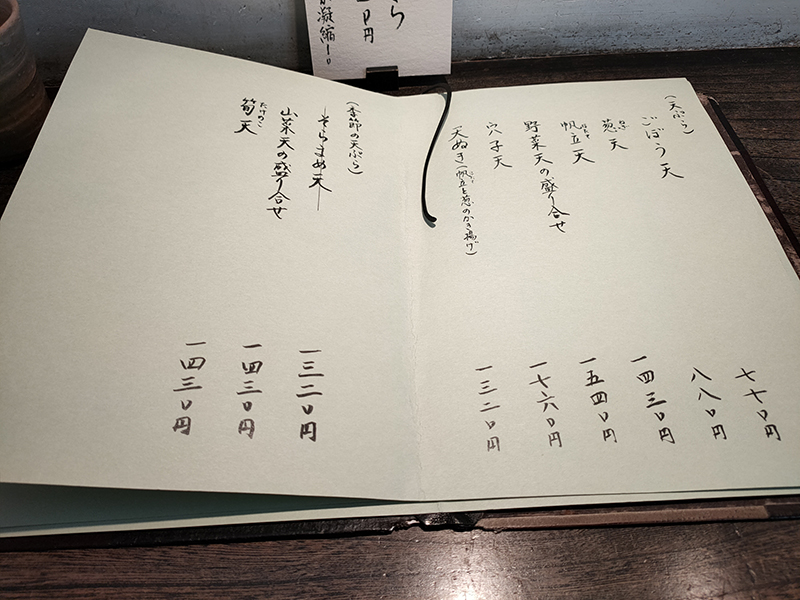 (天ぷら)
ごぼう天 七七〇円
葱天 八八〇円
帆立天 一四三〇円
野菜天の盛り合せ 一五四〇円
穴子天 一七六〇円
天ぬき(帆立と葱のかき揚げ) 一三二〇円
(季節の天ぷら)
そらまめ天 一三二〇円
山菜天の盛り合せ 一四三〇円
たけのこ
筍天 一四三〇円
ら
〇円
凝縮!。